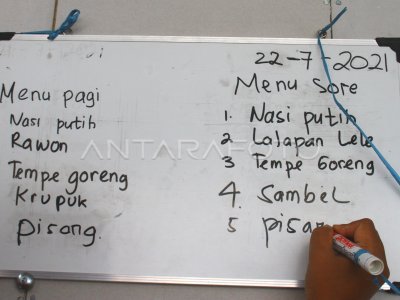 22-7-2021
Menu pagi
Nasi putih
Rawon
Tempe goreng
Krupuk
Pisang
Menu Sore
1. Nasi putih
2 Lalapan Lele
3 Tempe Goreng
4. Sambel
5 pisan
ANTARAFOTO